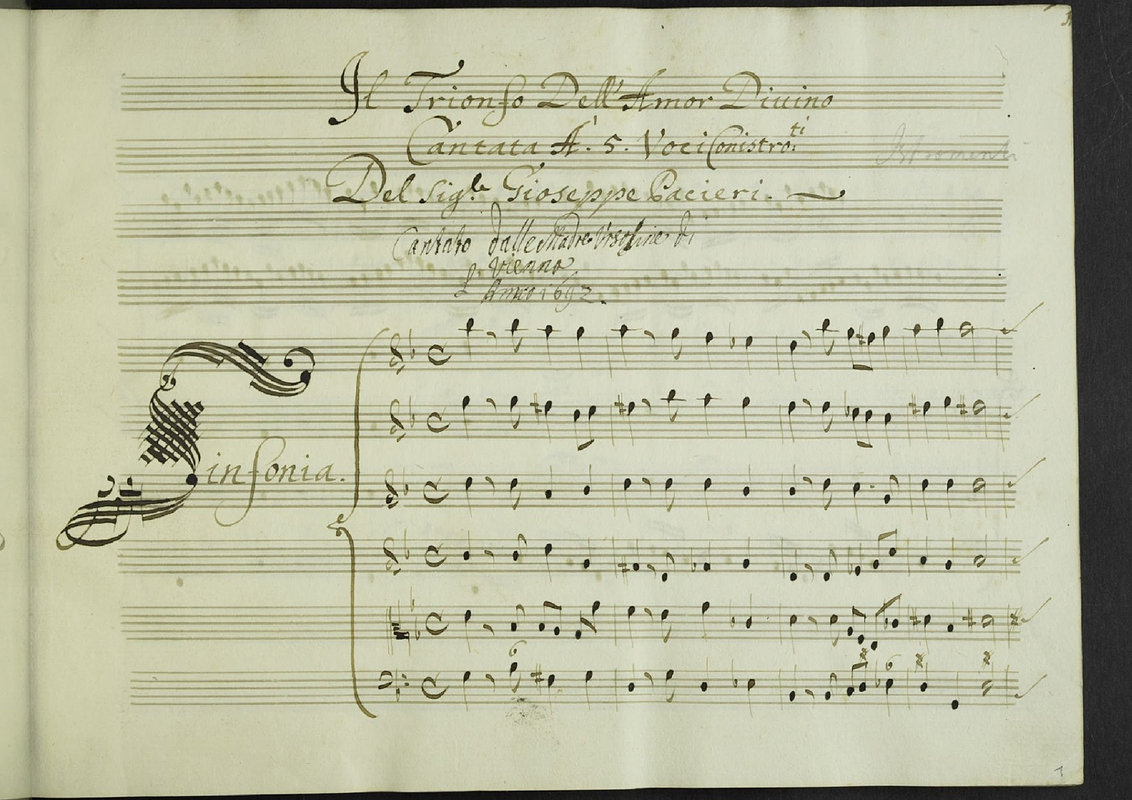 Il Trionfo Dell'Amor Diuino
Cantata A. 5. Voci Con istro:ti
Istromenti
Del Sig.le Gioseppe Pacieri.
Cantato dalle Madre Vrsoline di
Vienna
L'Anno 1692.
Sinfonia.
6
6